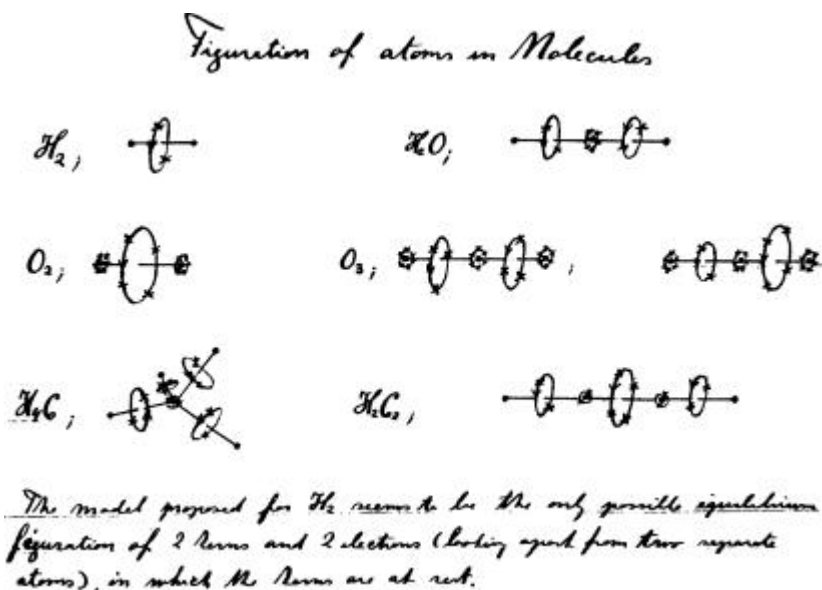 Figuration of atoms in Molecules
H₂; HO;
O₂; O₃; ;
H₄C; H₂C₂;
The model proposed for H₂ seems to be the only possible equilibrium
figuration of 2 kerns and 2 electrons (looking apart from two separate
atoms), in which the kerns are at rest.